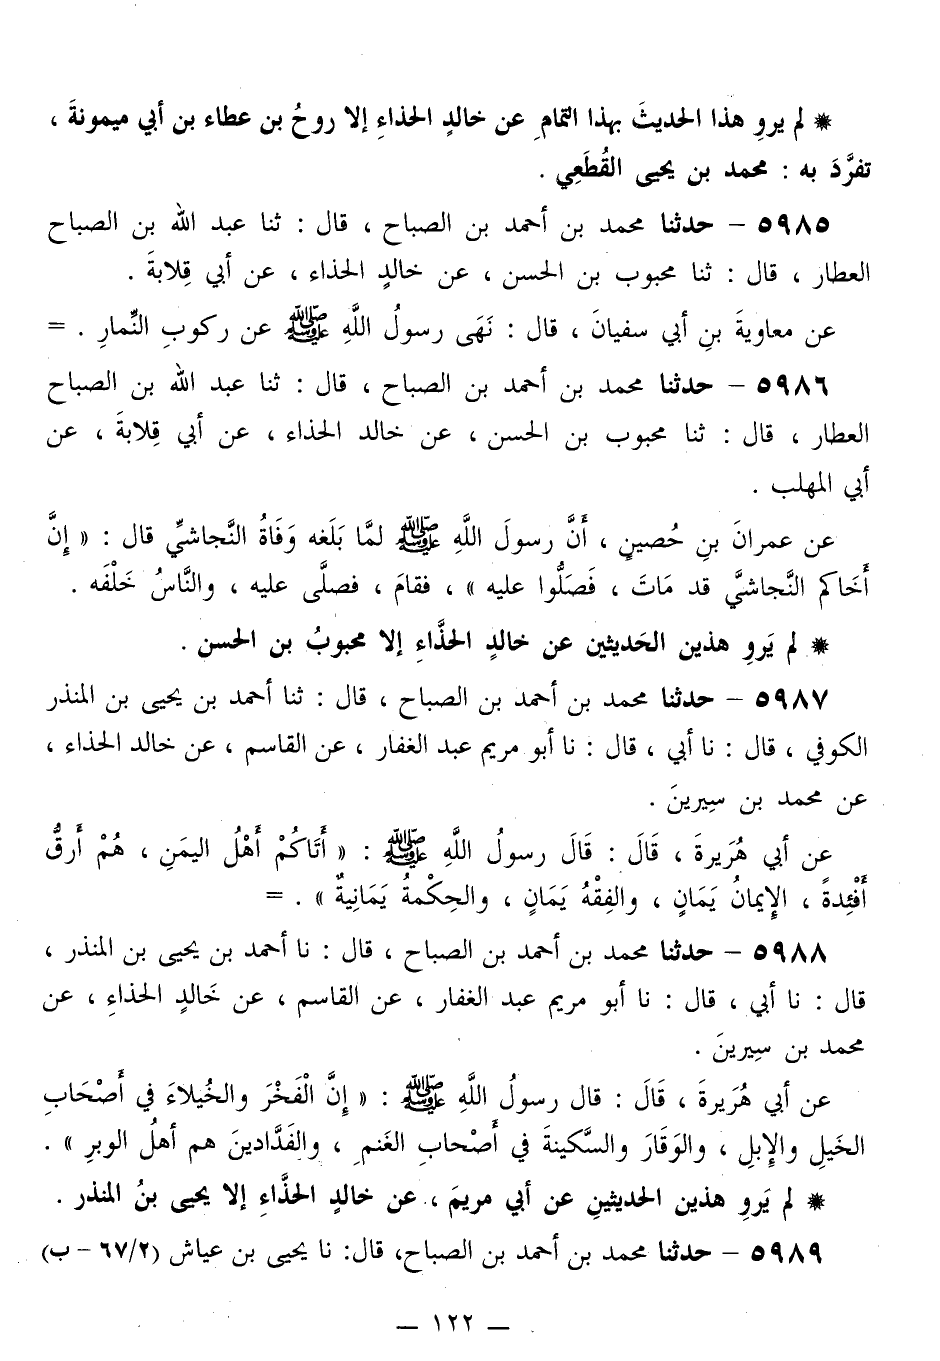 * لم يروِ هذا الحديثَ بهذا التمامِ عن خالدٍ الحذاءِ إلا روحُ بن عطاء بن أبي ميمونةَ ،
تفرَّدَ به : محمد بن يحيى القُطَعِي .
٥٩٨٥ – حدثنا محمد بن أحمد بن الصباح ، قال : ثنا عبد الله بن الصباح
العطار ، قال : ثنا محبوب بن الحسن ، عن خالدٍ الحذاء ، عن أبي قِلابةَ .
عن معاويةَ بنِ أبي سفيانَ ، قال : نَهَى رسولُ اللَّهِ ﷺ عن ركوبِ النِّمارِ . =
٥٩٨٦ – حدثنا محمد بن أحمد بن الصباح ، قال : ثنا عبد الله بن الصباح
العطار ، قال : ثنا محبوب بن الحسن ، عن خالد الحذاء ، عن أبي قِلابةَ ، عن
أبي المهلب .
عن عمرانَ بنِ حُصينٍ ، أَنَّ رسولَ اللَّهِ ﷺ لمَّا بَلَغه وَفَاةُ النَّجاشيِّ قال : « إِنَّ
أَخَاكم النَّجاشيَّ قد مَاتَ ، فَصَلُّوا عليه » ، فقامَ ، فصلَّى عليه ، والنَّاسُ خَلْفَه .
* لم يَروِ هذين الحَديثين عن خالدٍ الحذَّاءِ إلا محبوبُ بن الحسن .
٥٩٨٧ – حدثنا محمد بن أحمد بن الصباح ، قال : ثنا أحمد بن يحيى بن المنذر
الكوفي ، قال : نا أبي ، قال : نا أبو مريم عبد الغفار ، عن القاسم ، عن خالد الحذاء ،
عن محمد بن سِيرينَ .
عن أبي هُرَيرةَ ، قَالَ : قَالَ رسولُ اللَّهِ ﷺ : « أَتَاكُمْ أَهْلُ اليمَنِ ، هُمْ أَرقُّ
أَفْئِدةً ، الإِيمانُ يَمَانٍ ، والفِقْهُ يَمَانٍ ، والحِكْمةُ يَمَانِيةٌ » . =
٥٩٨٨ – حدثنا محمد بن أحمد بن الصباح ، قال : نا أحمد بن يحيى بن المنذر ،
قال : نا أبي ، قال : نا أبو مريم عبد الغفار ، عن القاسم ، عن خَالدٍ الحذاءِ ، عن
محمد بن سِيرينَ .
عن أبي هُرَيرةَ ، قَالَ : قال رسولُ اللَّهِ ﷺ : « إِنَّ الْفَخْرَ والخُيلاءَ في أَصْحَابِ
الخَيلِ والإِبلِ ، والوَقَارَ والسَّكينةَ في أَصْحابِ الغَنمِ ، والفَدَّادينَ هم أَهلُ الوبرِ » .
* لم يَروِ هذين الحديثينِ عن أبي مريمَ ، عن خالدٍ الحذَّاءِ إلا يحيى بنُ المنذر .
٥٩٨٩ – حدثنا محمد بن أحمد بن الصباح، قال: نا يحيى بن عياش (٦٧/٢ – ب)
— ١٢٢ —